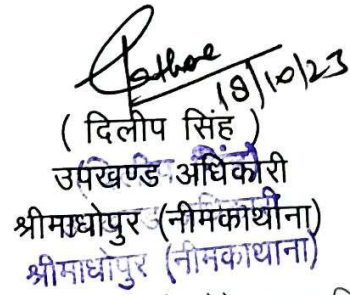 18/10/23
( दिलीप सिंह )
उपखण्ड अधिकारी
श्रीमाधोपुर (नीमकाथाना)
श्रीमाधोपुर (नीमकाथाना)